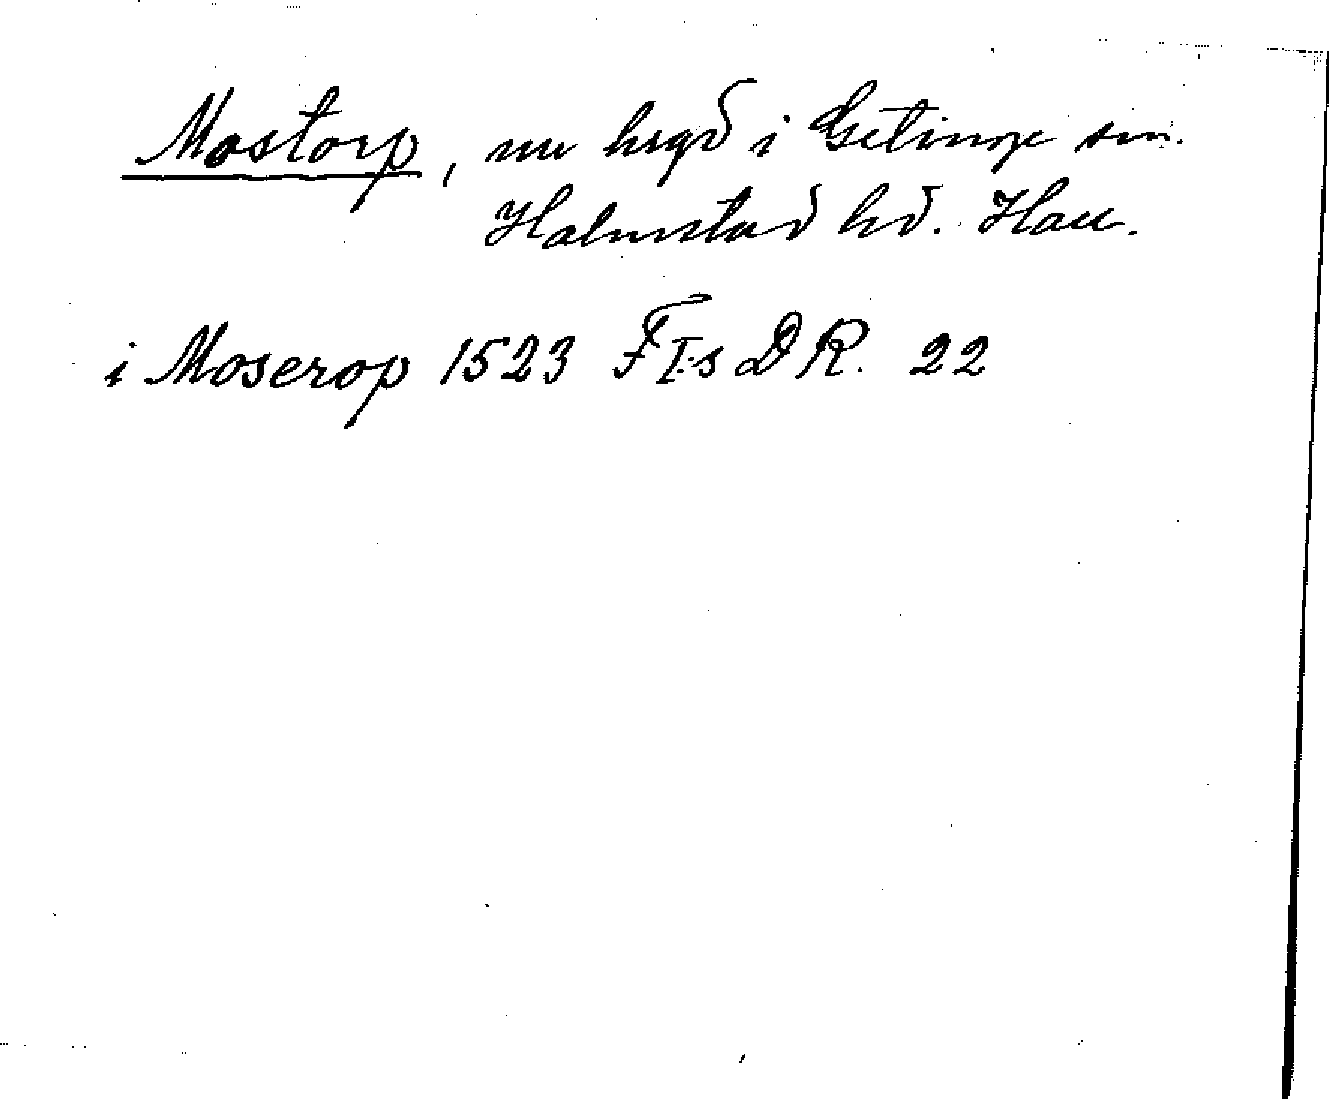 Mostorp, nu hsgd i Getinge sn.
Halmstad hd. Hall.
i Moserop 1523 FI:s DR. 22